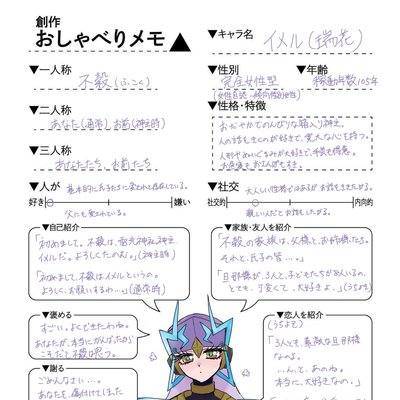 創作
おしゃべりメモ
▼キャラ名
イメル(瑞花)
▼一人称
不穀(ふこく)
▼性別
完全女性型
(女性自認・傾向性別女性)
▼年齢
稼動年数105年
▼二人称
あなた(通常) お前(神主時)
▼性格・特徴
おだやかでのんびりな箱入り神主。
人の話をきくのが好きで、寛大な心を持つ。
人形やぬいぐるみが大好きで、手芸も得意。
▼三人称
あなたたち、お前たち
▼人が
好き
嫌い
基本的に民子たちに愛されて存在している。
父にも愛されている。
▼社交
社交的
内向的
大人しい性格ではあるがお話をきき
親しい人だとお話をしたがる。
▼自己紹介
「初めまして。不穀は、雷光神社神主、
イメルだ。よろしくたのむ。」(神主時)
「初めまして、不穀はイメルというの。
よろしく、お願いするわ…。」(通常時)
▼家族・友人を紹介
「不穀の家族は、父様と、お姉様たち。
それと、民子の皆…。」
「旦那様が、3人と、子どもたちが
とても、可愛くて、大好きよ…。」(うちよそ)
▼褒める
すごい。よくできたわね。
あなたが、本当にがんばったから
こそだと不穀は思う。
▼恋人を紹介
(うちよそ)
「3人とも、素敵な旦那様
なのよ。
…んと、あのね。
本当に、大好きなの。」
▼謝る
ごめんなさい…。
あなたを、傷付けてしまった